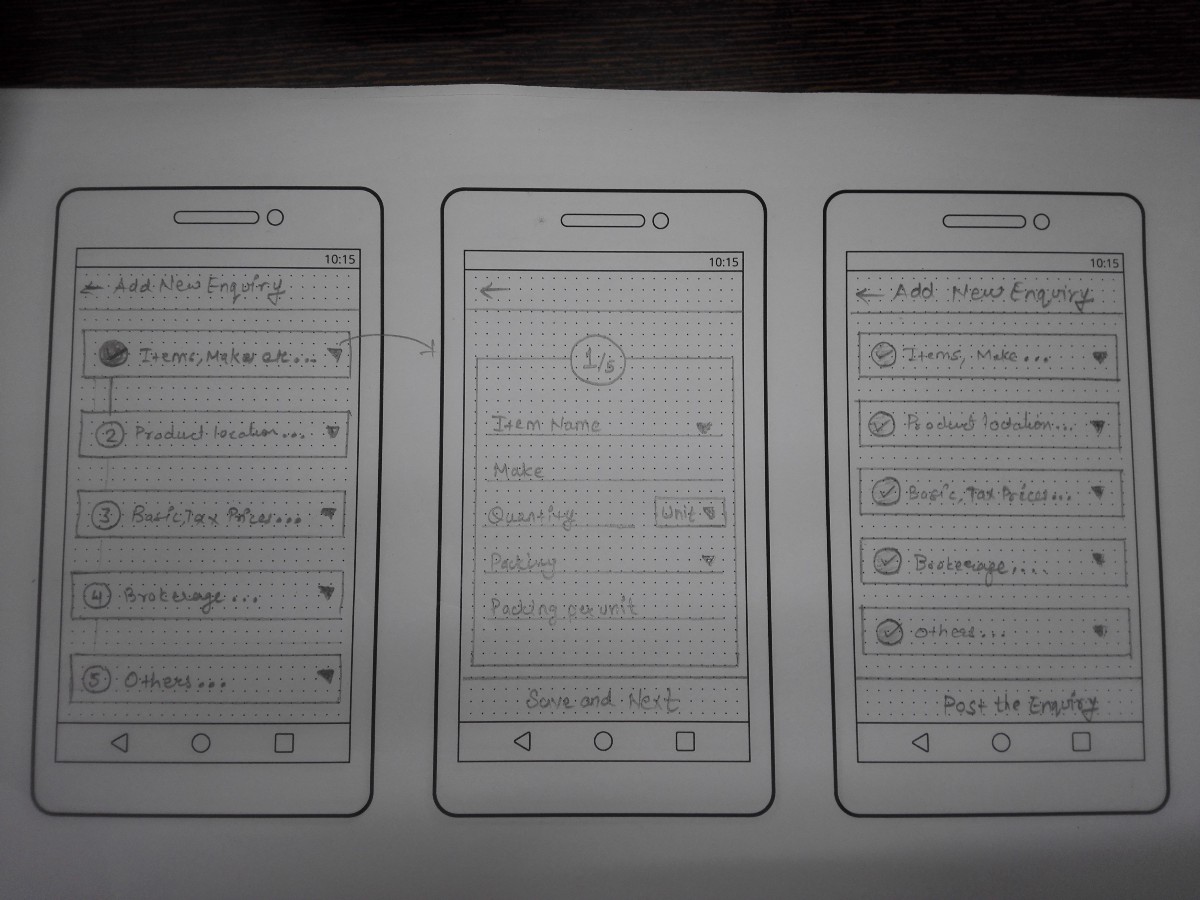 10:15
← Add New Enquiry
Items, Make etc...
2 Product location...
3 Basic, Tax Prices...
4 Brokerage...
5 Others...
10:15
←
1/5
Item Name
Make
Quantity Unit
Packing
Packing per unit
Save and Next
10:15
← Add New Enquiry
Items, Make...
Product location...
Basic, Tax Prices...
Brokerage....
Others...
Post the Enquiry